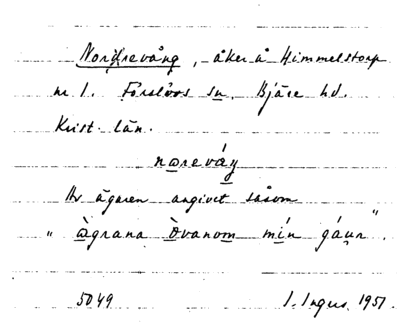 Nordrevång, åker å Himmelstorp
nr 1. Förslövs sn. Bjäre hd.
Krist. län.
nɑreváŋ
Av ägaren angivet såsom
"ɑ̀grana ò̱vanom mín gáu̯r".
5049 I. Ingers 1951.